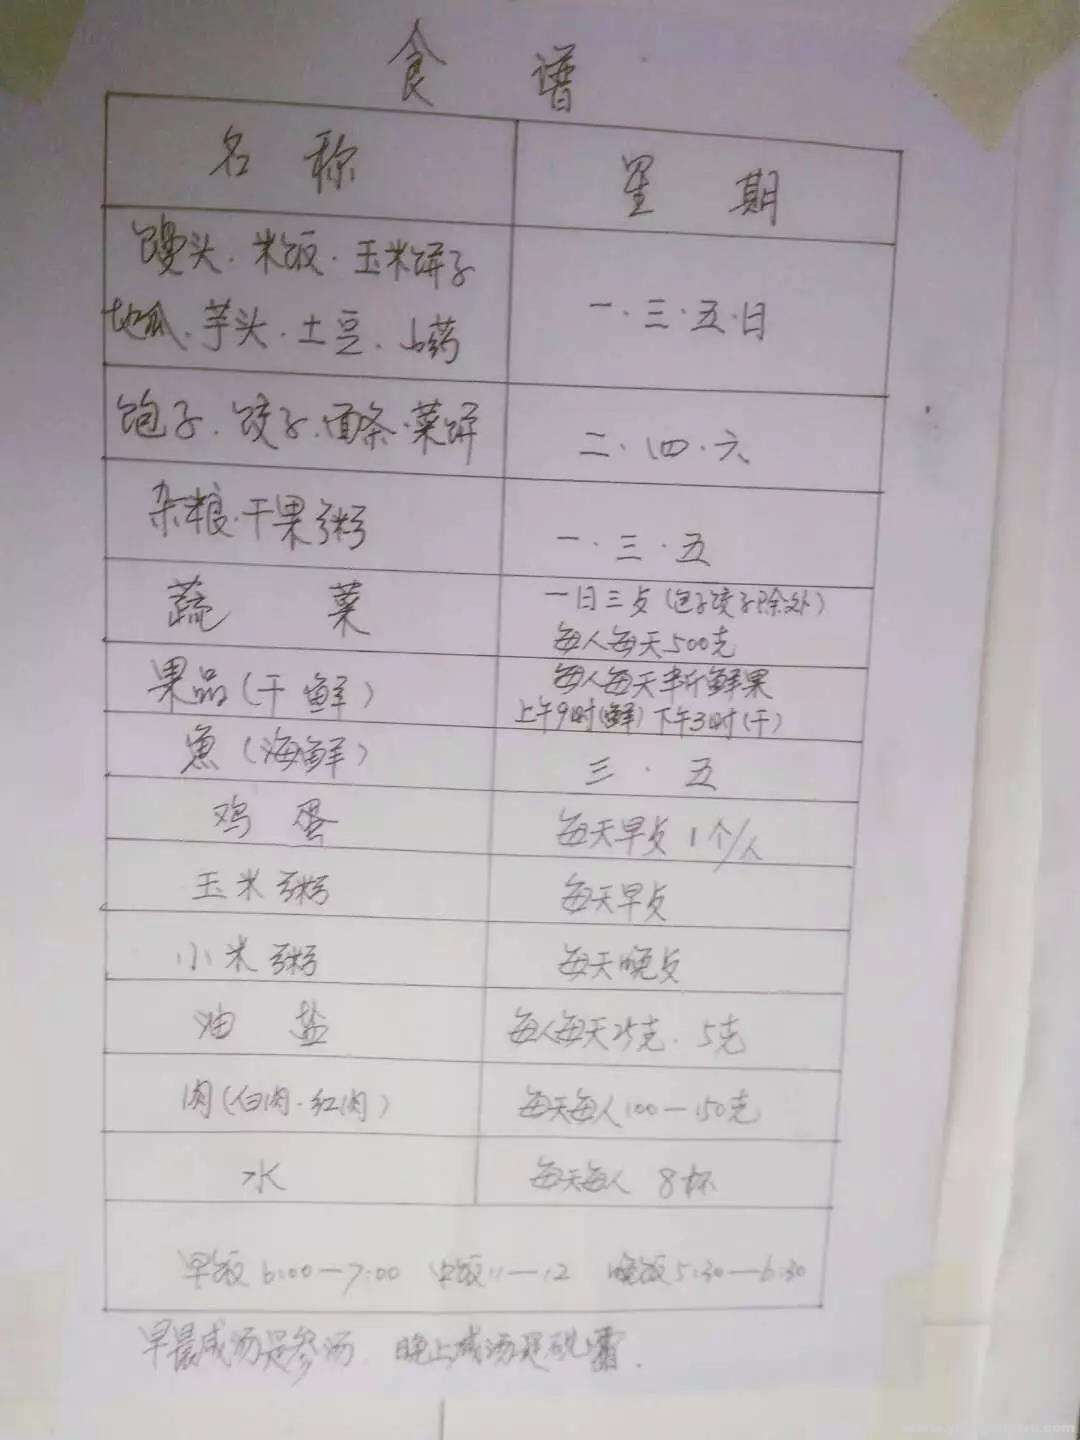 食 谱
名 称 星 期
馒头·米饭·玉米饼子
地瓜、芋头·土豆、山药
一·三·五·日
包子、饺子、面条·菜饼
二·四·六
杂粮·干果粥
一·三·五
蔬 菜
一日三歺(包子饺子除外)
每人每天500克
果品(干 鲜)
每人每天半斤鲜果
上午9时(鲜)下午3时(干)
鱼(海鲜)
三·五
鸡 蛋
每天早歺1个/人
玉米粥
每天早歺
小米粥
每天晚歺
油 盐
每人每天25克.5克
肉(白肉·红肉)
每天每人100—150克
水
每天每人 8杯
早饭6:00—7:00 中饭11—12 晚饭5:30—6:30
早晨咸汤是参汤 晚上咸汤是砒霜.